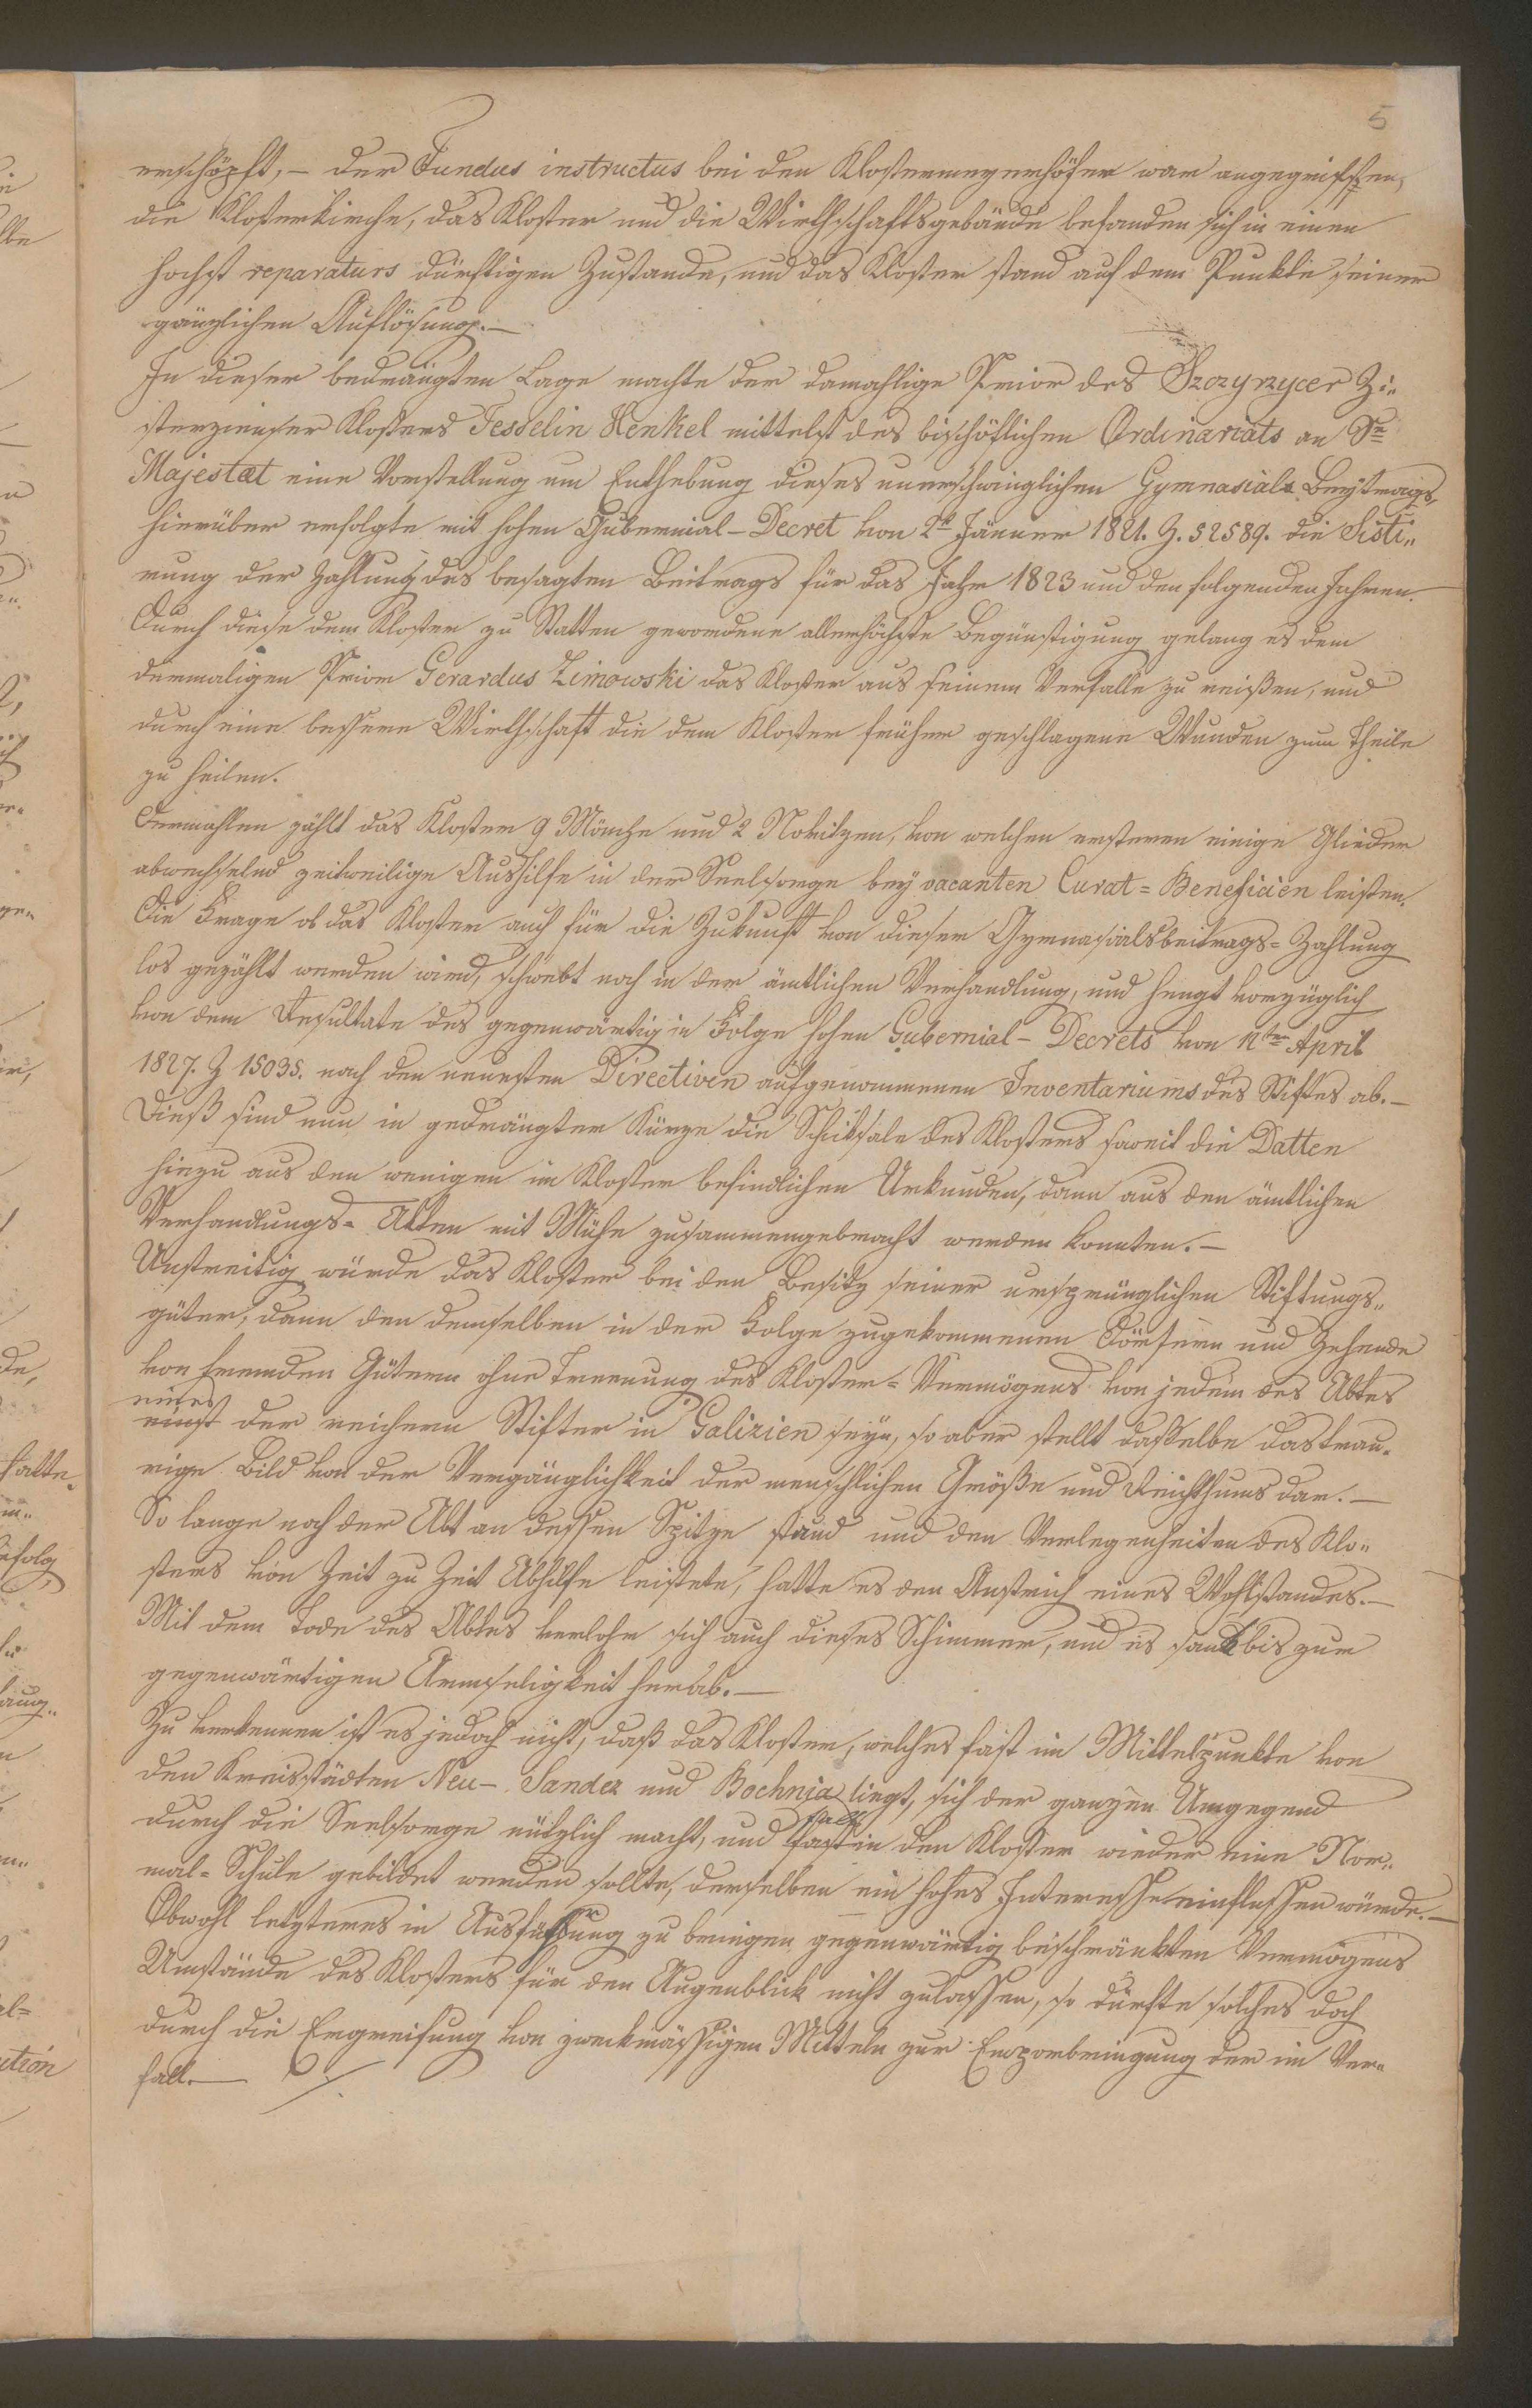 5
erschöpft, – der Fundus instructus bei den Klostermeyerhöfer war angegriffen,
die Klosterkirche, das Kloster und die Wirthschaftsgebäude befanden sich in einen
höchst reparaturs dürftigen Zustande, und das Kloster stand auf dem Punkte seiner
gänzlichen Auflösung. –
In dieser bedrängten Lage machte der damahlige Prior des Szczyrzycer Zi„
sterzienser Klosters Jesselin Henkel mittelst des bischöflichen Ordinariats an Se
Majestæt eine Vorstellung um Enthebung dieses unerschwinglichen Gymnasials Beytrags,
hierüber erfolgte mit hohen Gubernial-Decret von 2t Jänner 1821. Z. 52589. die Sisti„
rung der Zahlung des besagten Beitrags für das Jahr 1823 und den folgenden Jahren. –
Durch diese dem Kloster zu Statten gewordene allerhöchste Begünstigung gelang es dem
dermaligen Prior Gerardus Zimowski das Kloster aus seinem Verfalle zu reißen, und
durch eine bessere Wirthschaft die dem Kloster früher geschlagene Wunden zum Theile
zu heilen.
Dermahlen zählt das Kloster 9 Mönche und 2 Novitzen, von welchen ersteren einige Glieder
abwechselnd zeitweilige Aushilfe in der Seelsorge bey vacanten Curat=Beneficien leisten.
Die Frage ob das Kloster auch für die Zukunft von dieser Gymnasialsbeitrags=Zahlung
los gezählt werden wird, schwebt noch in der ämtlichen Verhandlung, und hengt vorzüglich
von dem Resultate des gegenwärtig in Folge hohen Gubernial-Decrets von 12ten April
1827. Z 15035. nach den neuesten Directiven aufgenommenen Inventariums des Stiftes ab. –
Dieß sind nun in gedrängter Kürze die Schiksale des Klosters soweit die Datten
hiezu aus den wenigen im Kloster befindlichen Urkunden, dann aus den ämtlichen
Verhandlungs=Akten mit Mühe zusammengebracht werden konnten. –
Unstreitig würde das Kloster bei den Besitz seiner ursprünglichen Stiftungs„
güter, dann den demselben in der Folge zugekommenen Dörfern und Zehende
von fremden Gütern ohne Trennung des Kloster=Vermögens von jedem des Abtes
eines
einst der reichern Stifter in Galizien seyn, so aber stellt dasselbe das trau„
rige Bild von der Vergänglichkeit der menschlichen Größe und Reichthums dar. –
So lange noch der Abt an dessen Spitze stand und den Verlegenheiten des Klo„
sters von Zeit zu Zeit Abhilfe leistete, hatte es den Anstrich eines Wohlstandes. –
Mit dem Tode des Abtes verlohr sich auch dieses Schimmer, und es sank bis zur
gegenwärtigen Armseligkeit herab. –
Zu verkennen ist es jedoch nicht, daß das Kloster, welches fast im Mittelpunkte von
den Kreisstädten Neu-Sandez und Bochnia liegt, sich der ganzen Umgegend
durch die Seelsorge nützlich macht, und fast in den Kloster wieder eine Nor„
falls
mal=Schule gebildet werden sollte, derselben ein hohes Interesse einflossen würde. –
Obwohl letzteres in Ausführung zu bringen gegenwärtig beschränkten Vermögens
Umstände des Klosters für den Augenblick nicht zulassen, so dürfte solches doch
durch die Ergreifung von zweckmässigen Mitteln zur Emporbringung der im Ver„
fall. –